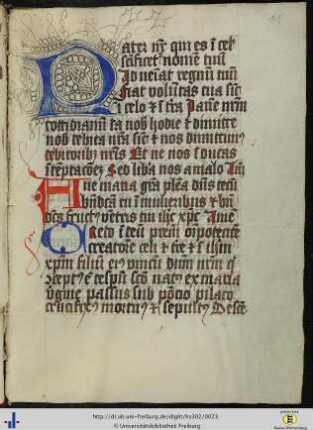 Pater nr qui es i cel
scificet nomē tuū
Adveniat regnū tuū
Fiat volūtas tua sic
i celo & i tra Panē nrm
cottidianū da nob hodie & dimitte
nob debita nra sic & nos dimittim
debitoribz nris Et ne nos iducas
i teptacōez Sed liba nos a malo Am
Aue maria gra plena dns tecū
bndcta tu i mulieribus & bn
dcs fruct ventris tui ihc xpc Ame
Credo i deū prem oipotente
creatore celi & tre & i ihm
xpm filiū ei vnicū dnm nrm q
cept e de spū scō nat ex maria
v̄gine passus sub pōcio pilato
crucifix mortu & sepult Desce
http://dl.ub.uni-freiburg.de/diglit/hs302/0023
© Universitätsbibliothek Freiburg